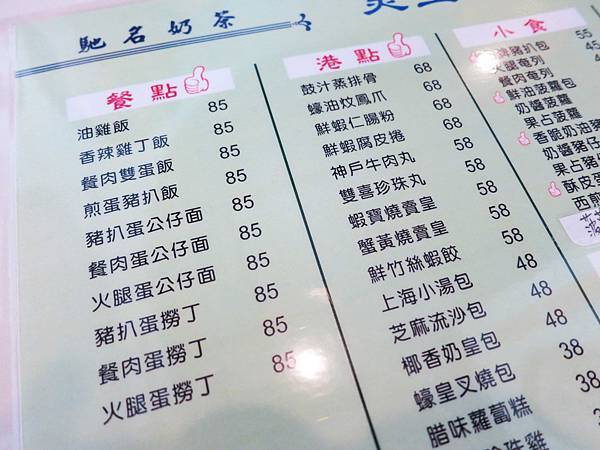 馳名奶茶
餐點
油雞飯 85
香辣雞丁飯 85
餐肉雙蛋飯 85
煎蛋豬扒飯 85
豬扒蛋公仔面 85
餐肉蛋公仔面 85
火腿蛋公仔面 85
豬扒蛋撈丁 85
餐肉蛋撈丁 85
火腿蛋撈丁 85
港點
鼓汁蒸排骨 68
蠔油炆鳳爪 68
鮮蝦仁腸粉 68
鮮蝦腐皮捲 68
神戶牛肉丸 58
雙喜珍珠丸 58
蝦寶燒賣皇 58
蟹黃燒賣皇 58
鮮竹絲蝦餃 48
上海小湯包 48
芝麻流沙包 48
椰香奶皇包 38
蠔皇叉燒包 38
臘味蘿蔔糕
珍珠雞
小食
豬扒包 55
火腿奄列 45
餐肉奄列
鮮油菠蘿包
奶醬菠蘿
果占菠蘿
香脆奶油豬
奶醬豬仔
果占豬
酥皮蛋
西煎